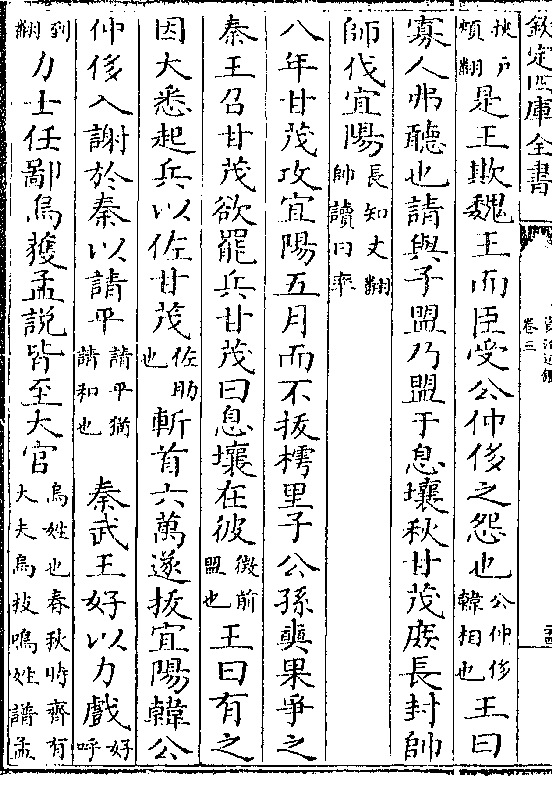 欽定四庫全書
資治通鑑
卷三
挾戶頰翻是王欺魏王而臣受公仲侈之怨也公仲侈韓相也王曰
寡人弗聽也請與子盟乃盟于息壤秋甘茂庶長封帥
師伐宜陽長知丈翻帥讀曰率
八年甘茂攻宜陽五月而不拔樗里子公孫奭果爭之
秦王召甘茂欲罷兵甘茂曰息壤在彼徵前盟也王曰有之
因大悉起兵以佐甘茂佐助也斬首六萬遂拔宜陽韓公
仲侈入謝於秦以請平請平猶請和也秦武王好以力戲好呼
到翻力士任鄙烏獲孟說皆至大官烏姓也春秋時齊有大夫烏枝鳴姓譜孟